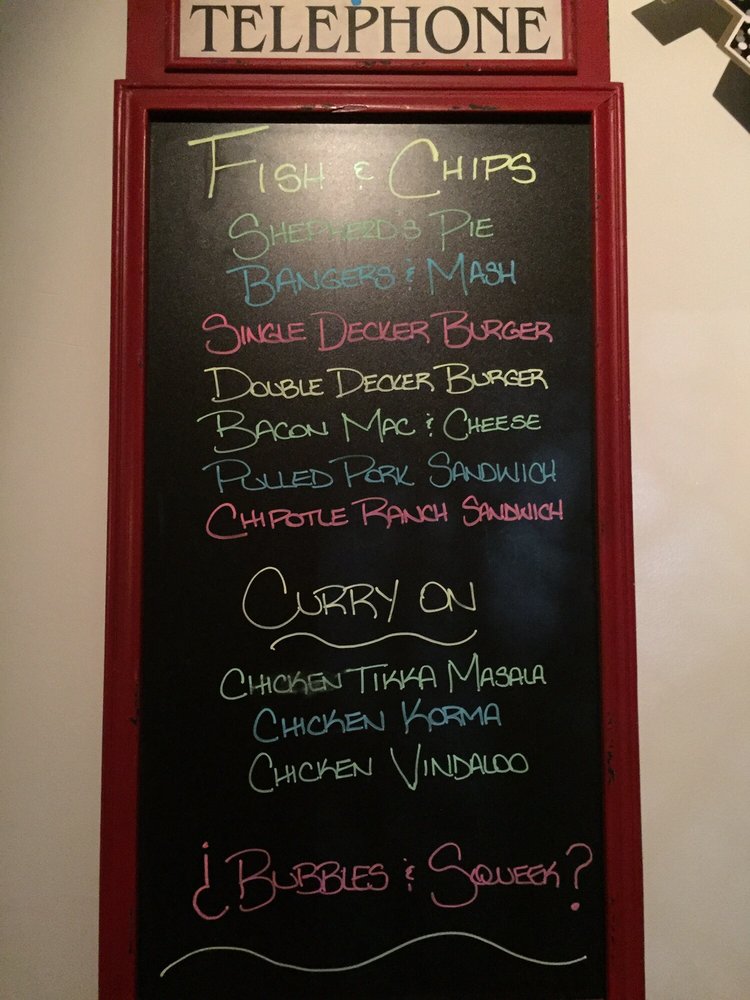 TELEPHONE
FISH & CHIPS
SHEPHERD'S PIE
BANGERS & MASH
SINGLE DECKER BURGER
DOUBLE DECKER BURGER
BACON MAC & CHEESE
PULLED PORK SANDWICH
CHIPOTLE RANCH SANDWICH
CURRY ON
CHICKEN TIKKA MASALA
CHICKEN KORMA
CHICKEN VINDALOO
¿BUBBLES & SQUEEK?